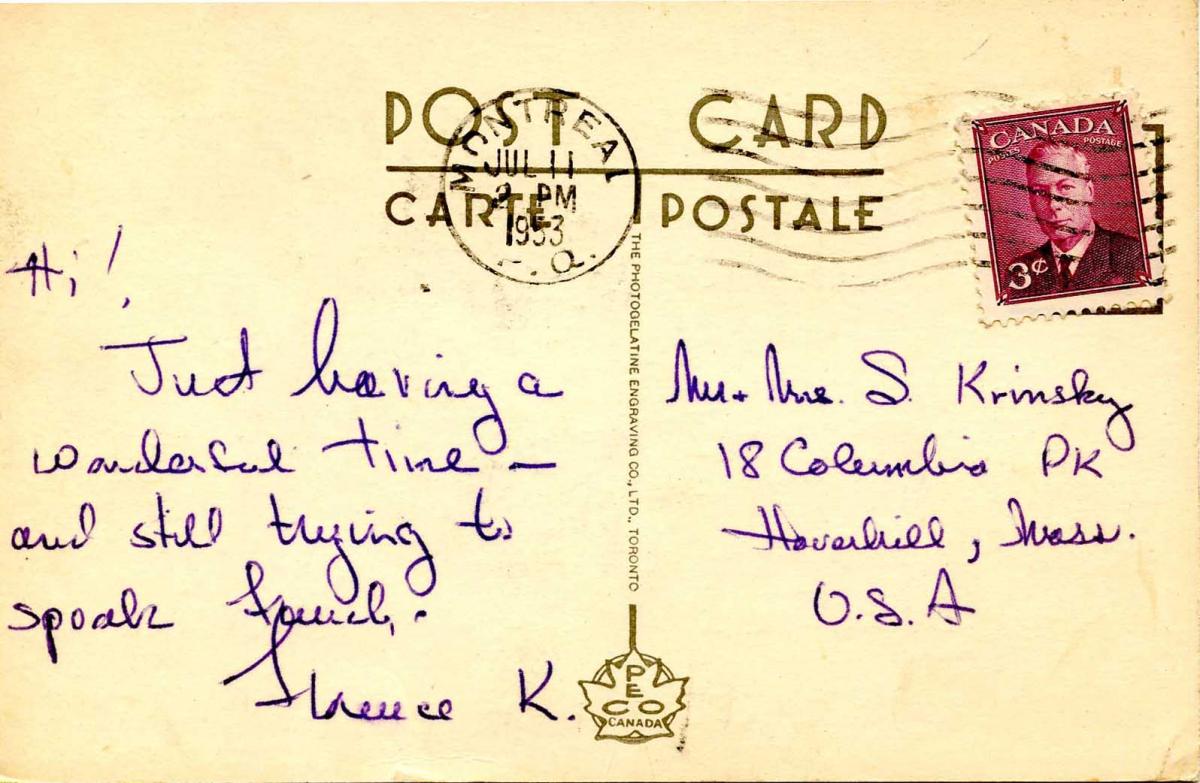 POST CARD
CARTE POSTALE
MONTREAL
JUL 11
2 PM
1953
P.Q.
CANADA
POSTES POSTAGE
3¢
Hi!
Just having a
wonderful time –
and still trying to
speak French.
Florence K.
THE PHOTOGELATINE ENGRAVING CO., LTD., TORONTO
PECO
CANADA
Mr + Mrs. S. Krinsky
18 Columbia PK
Haverhill, Mass.
U.S.A